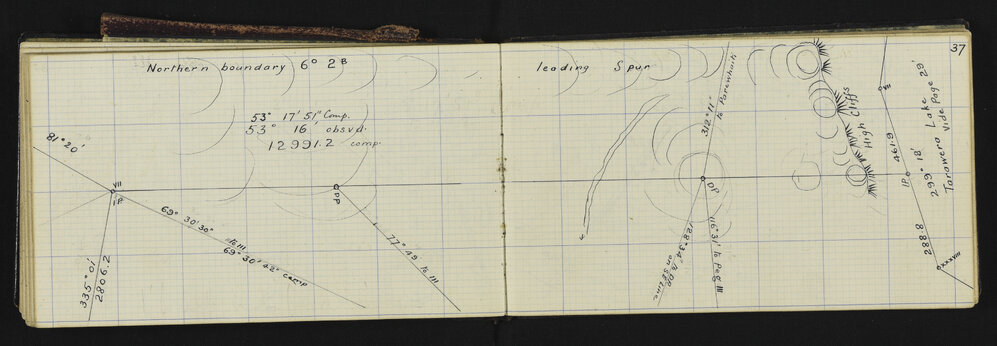 Northern boundary 6° 2B
53° 17' 51" Comp.
53° 16' obsvd.
12991.2 comp.
81° 20'
VII
IP
69° 30' 30"
to III
69° 30' 42" comp
335° 01'
2806.2
DP
77° 49 to III
leading Spur
37
312° 11'
to Parewhaiti
DP
128° 34' to DP
on SB Line
116° 31' to Peg III
High Cliffs
461.9
IP
288.8
299° 18'
Tarawera Lake
Vide Page 29
XXXVIII